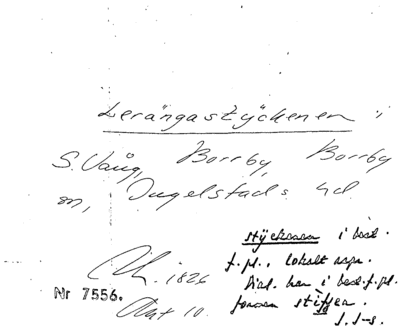 Lerängastyckenen i
S. Vång, Borrby, Borrby
sn, Ingelstads hd
1826
Akt 10.
Nr 7556.
styckenen i best.
f.pl., lokalt uppr.
Dial. har i best.f.pl.
formen